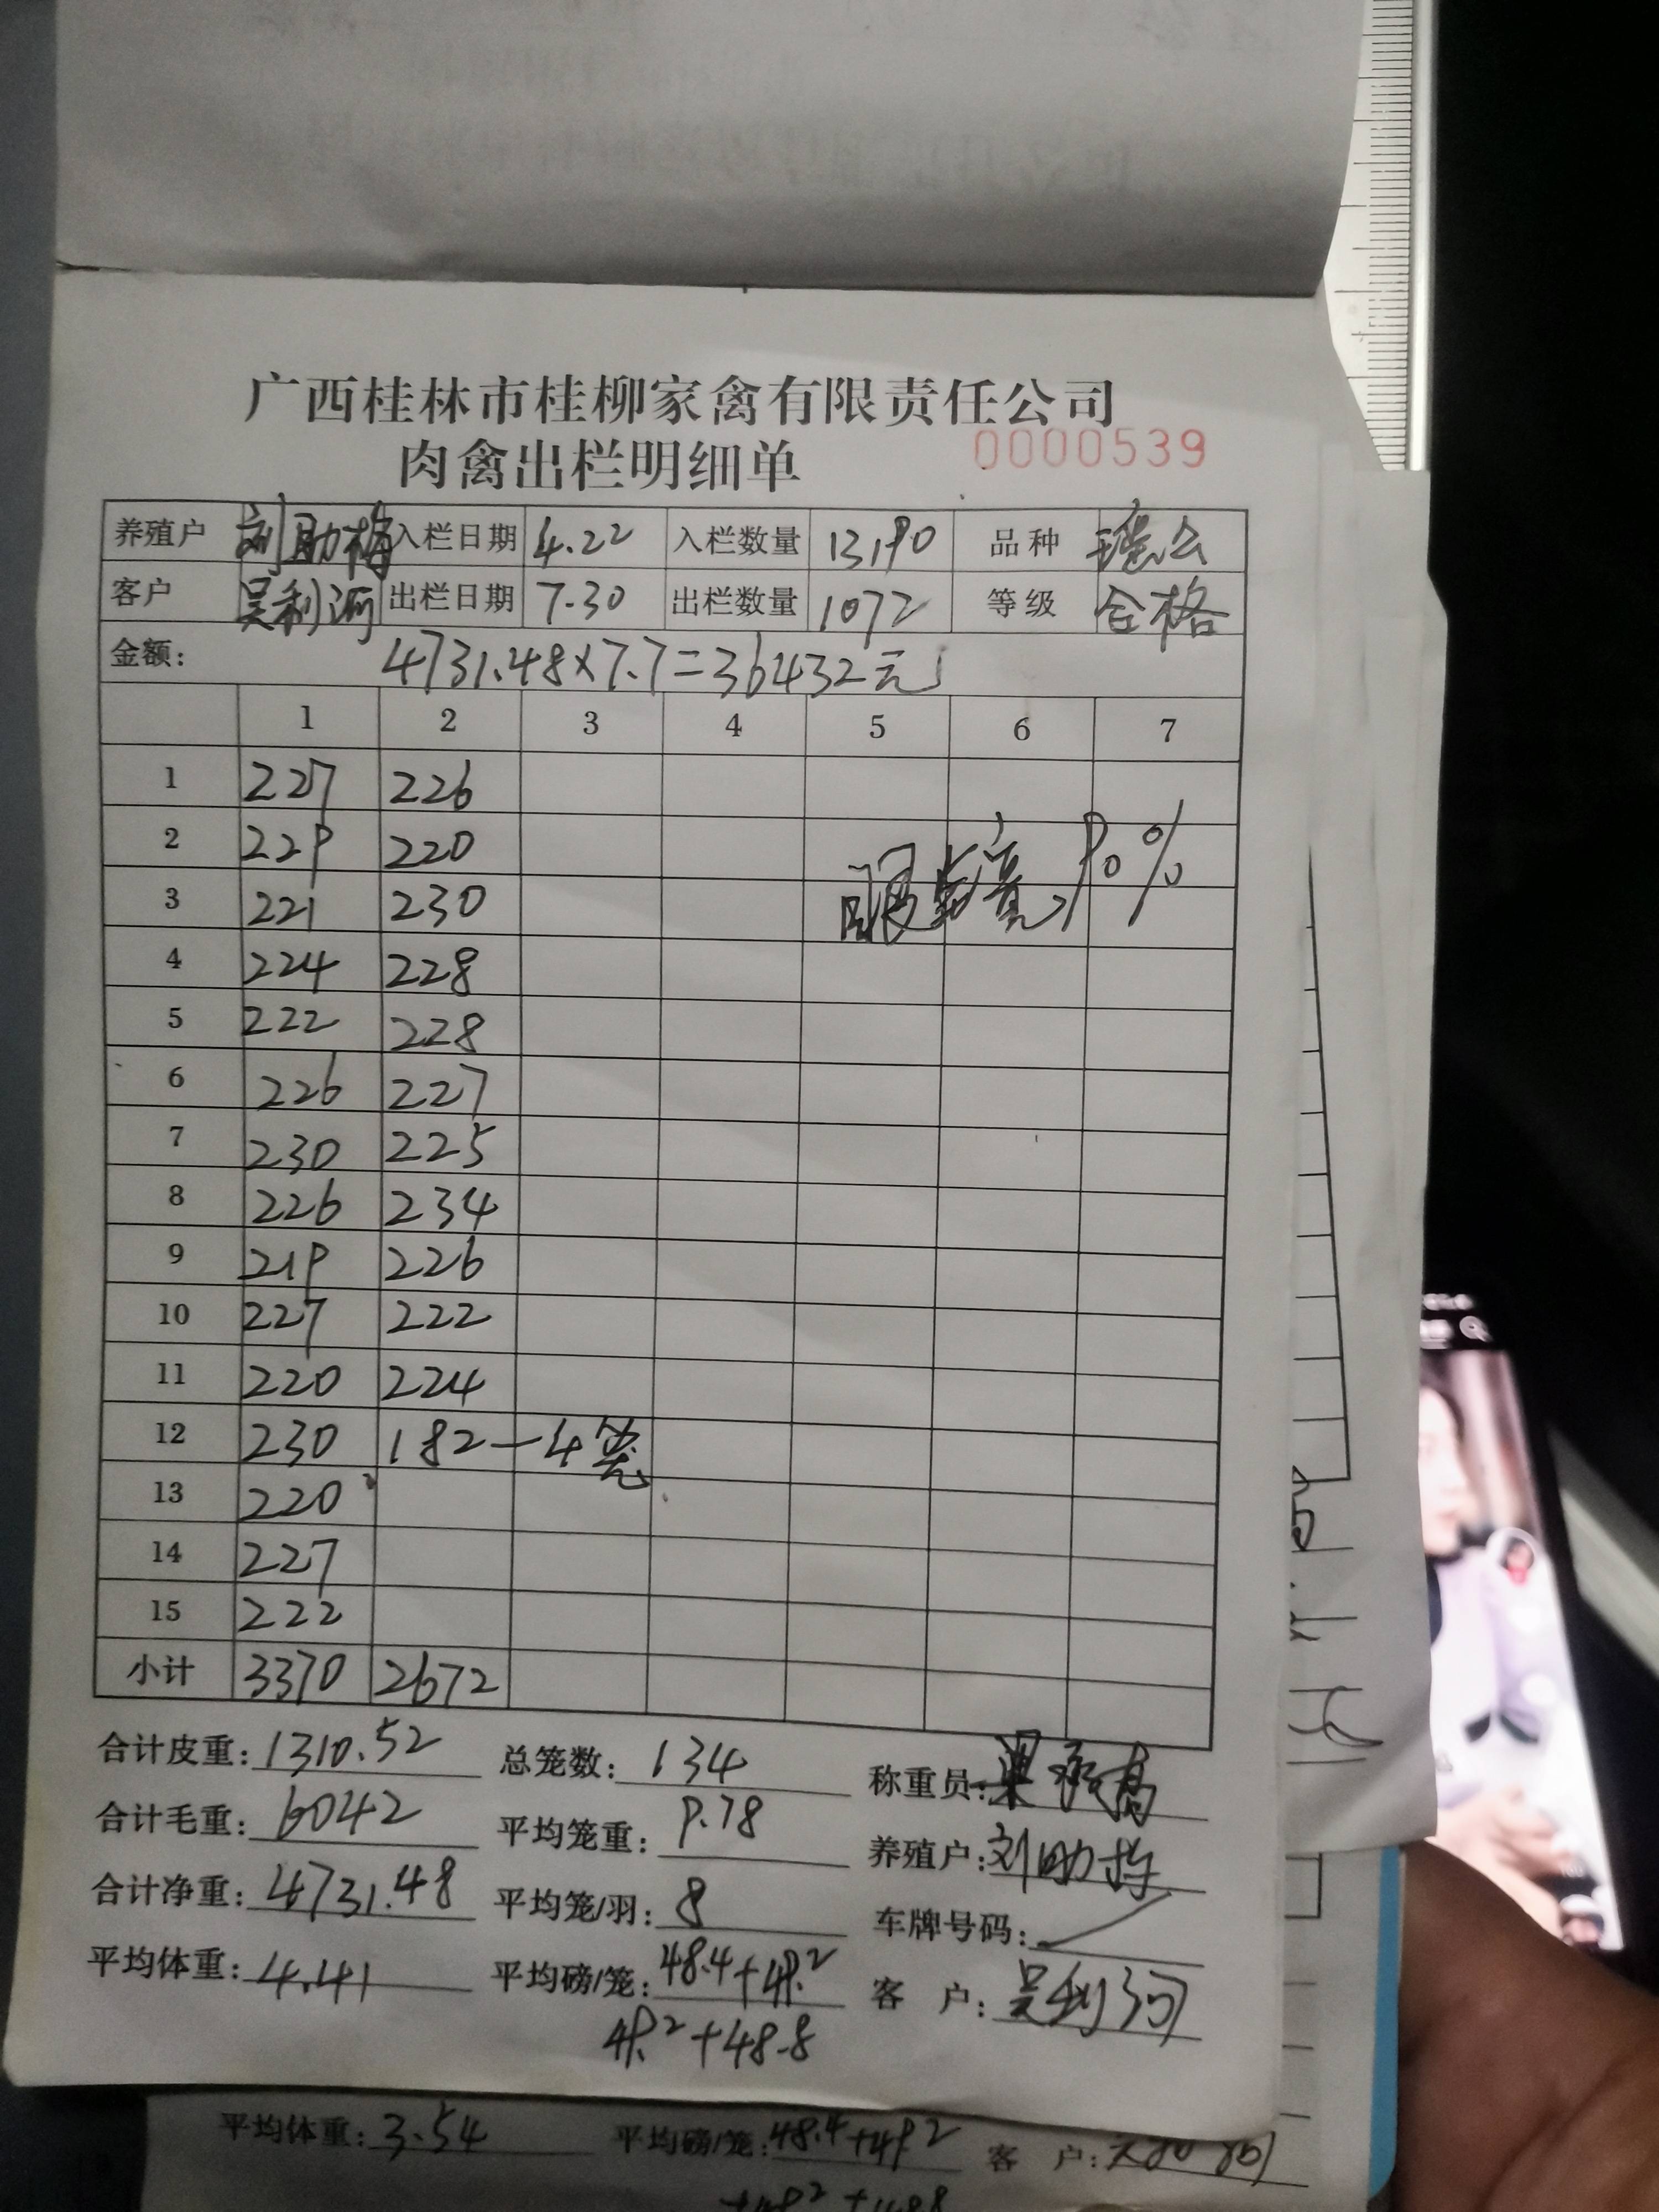 广西桂林市桂柳家禽有限责任公司
肉禽出栏明细单 0000539
养殖户 刘助梅 入栏日期 4.22 入栏数量 13190 品种 瑶公
客户 吴利河 出栏日期 7.30 出栏数量 1072 等级 合格
金额: 4731.48×7.7=36432元
1 2 3 4 5 6 7
1 227 226
2 229 220 90%
3 221 230
4 224 228
5 222 228
6 226 227
7 230 225
8 226 234
9 219 226
10 227 222
11 220 224
12 230 182—4笼
13 220
14 227
15 222
小计 3370 2672
合计皮重: 1310.52 总笼数: 134 称重员:
合计毛重: 6042 平均笼重: 9.78 养殖户: 刘助梅
合计净重: 4731.48 平均笼/羽: 8 车牌号码:
平均体重: 4.41 平均磅/笼: 48.4+49.2 客 户: 吴利河
49.2+48.8
平均体重: 3.54 平均磅/笼: 48.4+49.2 客 户:
+49.2+48.8